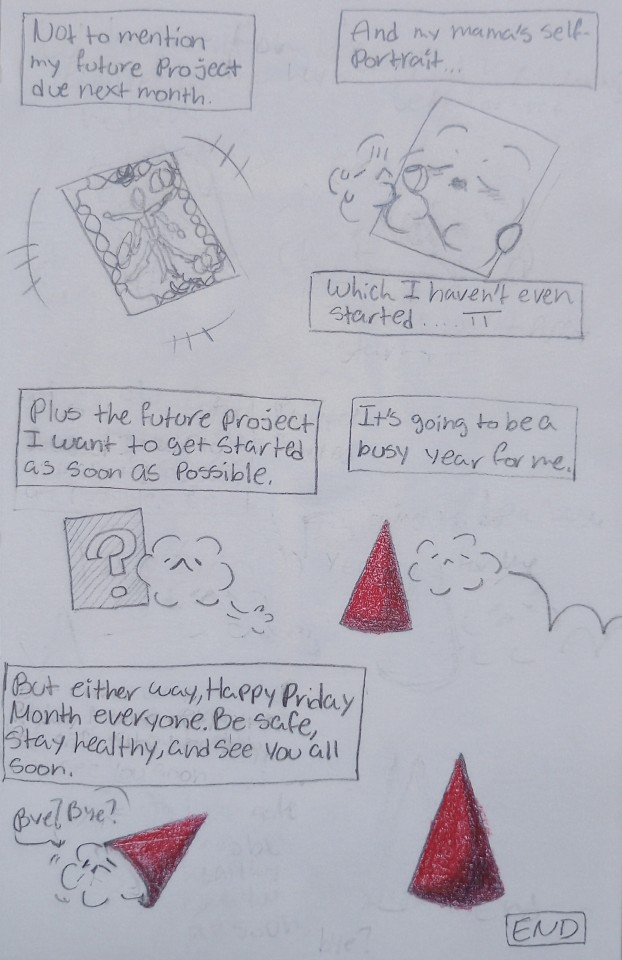 Not to mention
my future project
due next month.
And my mama's self-
Portrait...
Which I haven't even
started....
Plus the future project
I want to get started
as soon as possible.
It's going to be a
busy year for me.
?
But either way, Happy Priday
Month everyone. Be safe,
Stay healthy, and see you all
soon.
Bye? Bye?
END